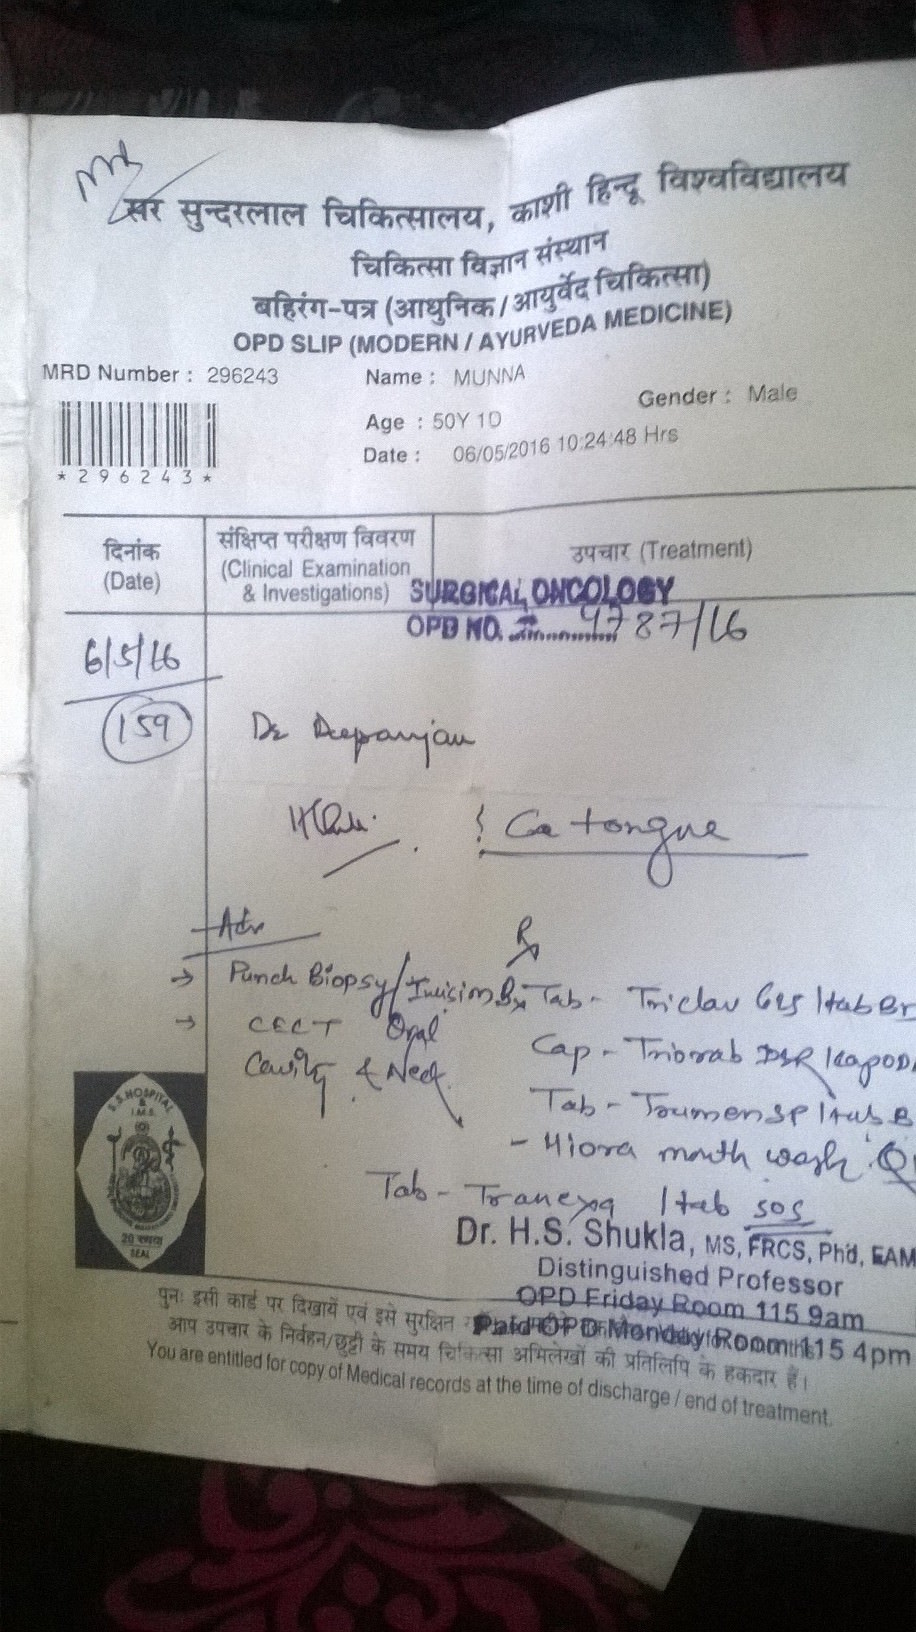 सर सुन्दरलाल चिकित्सालय, काशी हिन्दू विश्वविद्यालय
चिकित्सा विज्ञान संस्थान
बहिरंग-पत्र (आधुनिक / आयुर्वेद चिकित्सा)
OPD SLIP (MODERN / AYURVEDA MEDICINE)
MRD Number : 296243
Name : MUNNA
Gender : Male
Age : 50Y 1D
Date : 06/05/2016 10:24:48 Hrs
*296243*
दिनांक
(Date)
संक्षिप्त परीक्षण विवरण
(Clinical Examination
& Investigations)
उपचार (Treatment)
SURGICAL ONCOLOGY
OPD NO. 4787/16
6/5/16
159
Dr Deepanjan
Ca tongue
Adv
→ Punch Biopsy/Incision Bx
→ CECT Oral
Cavity & Neck
Rx
Tab - Triclav 625 1tab
Cap - DSR 1cap OD
Tab - SP 1tab
- Hiora mouth wash
Tab - Tranexa 1tab SOS
Dr. H.S. Shukla, MS, FRCS, PhD, EAM
Distinguished Professor
OPD Friday Room 115 9am
Paid OPD Monday Room 115 4pm
S.S. HOSPITAL
&
I.M.S.
20 रुपया
SEAL
पुनः इसी कार्ड पर दिखायें एवं इसे सुरक्षित
आप उपचार के निर्वहन/छुट्टी के समय चिकित्सा अभिलेखों की प्रतिलिपि के हकदार हैं।
You are entitled for copy of Medical records at the time of discharge / end of treatment.